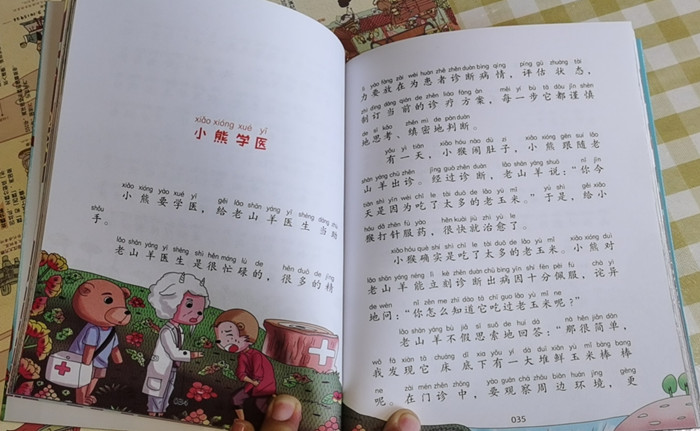 xiǎo xióng xué yī
小熊学医
xiǎo xióng yào xué yī gěi lǎo shān yáng yī shēng dāng zhù
小熊要学医，给老山羊医生当助
shǒu
手。
lǎo shān yáng yī shēng shì hěn máng lù de hěn duō de jīng
老山羊医生是很忙碌的，很多的精
034
lì yào fàng zài wèi huàn zhě zhěn duàn bìng qíng píng gū zhuàng tài
力要放在为患者诊断病情，评估状态，
zhì dìng dāng qián de zhěn liáo fāng àn měi yí bù tā dōu jǐn shèn
制订当前的诊疗方案，每一步它都谨慎
de sī kǎo zhěn mì de pàn duàn
地思考、缜密地判断。
yǒu yì tiān xiǎo hóu nào dù zi xiǎo xióng gēn suí lǎo
有一天，小猴闹肚子，小熊跟随老
shān yáng chū zhěn jīng guò zhěn duàn lǎo shān yáng shuō nǐ jīn
山羊出诊。经过诊断，老山羊说：“你今
tiān shì yīn wèi chī le tài duō de lǎo yù mǐ yú shì gěi xiǎo
天是因为吃了太多的老玉米。”于是，给小
hóu dǎ zhēn fú yào hěn kuài jiù zhì yù le
猴打针服药，很快就治愈了。
xiǎo hóu què shí shì chī le tài duō de lǎo yù mǐ xiǎo xióng duì
小猴确实是吃了太多的老玉米。小熊对
lǎo shān yáng néng lì kè zhěn duàn chū bìng yīn shí fēn pèi fú chà yì
老山羊能立刻诊断出病因十分佩服，诧异
de wèn nǐ zěn me zhī dào tā chī guo lǎo yù mǐ ne
地问：“你怎么知道它吃过老玉米呢？”
lǎo shān yáng bù jiǎ sī suǒ de huí dá nà hěn jiǎn dān
老山羊不假思索地回答：“那很简单，
wǒ fā xiàn tā chuáng dǐ xia yǒu yí dà duī xiān yù mǐ bàng bang
我发现它床底下有一大堆鲜玉米棒棒
ne zài mén zhěn zhōng yào guān chá zhōu biān huán jìng gèng
呢。在门诊中，要观察周边环境，更
035